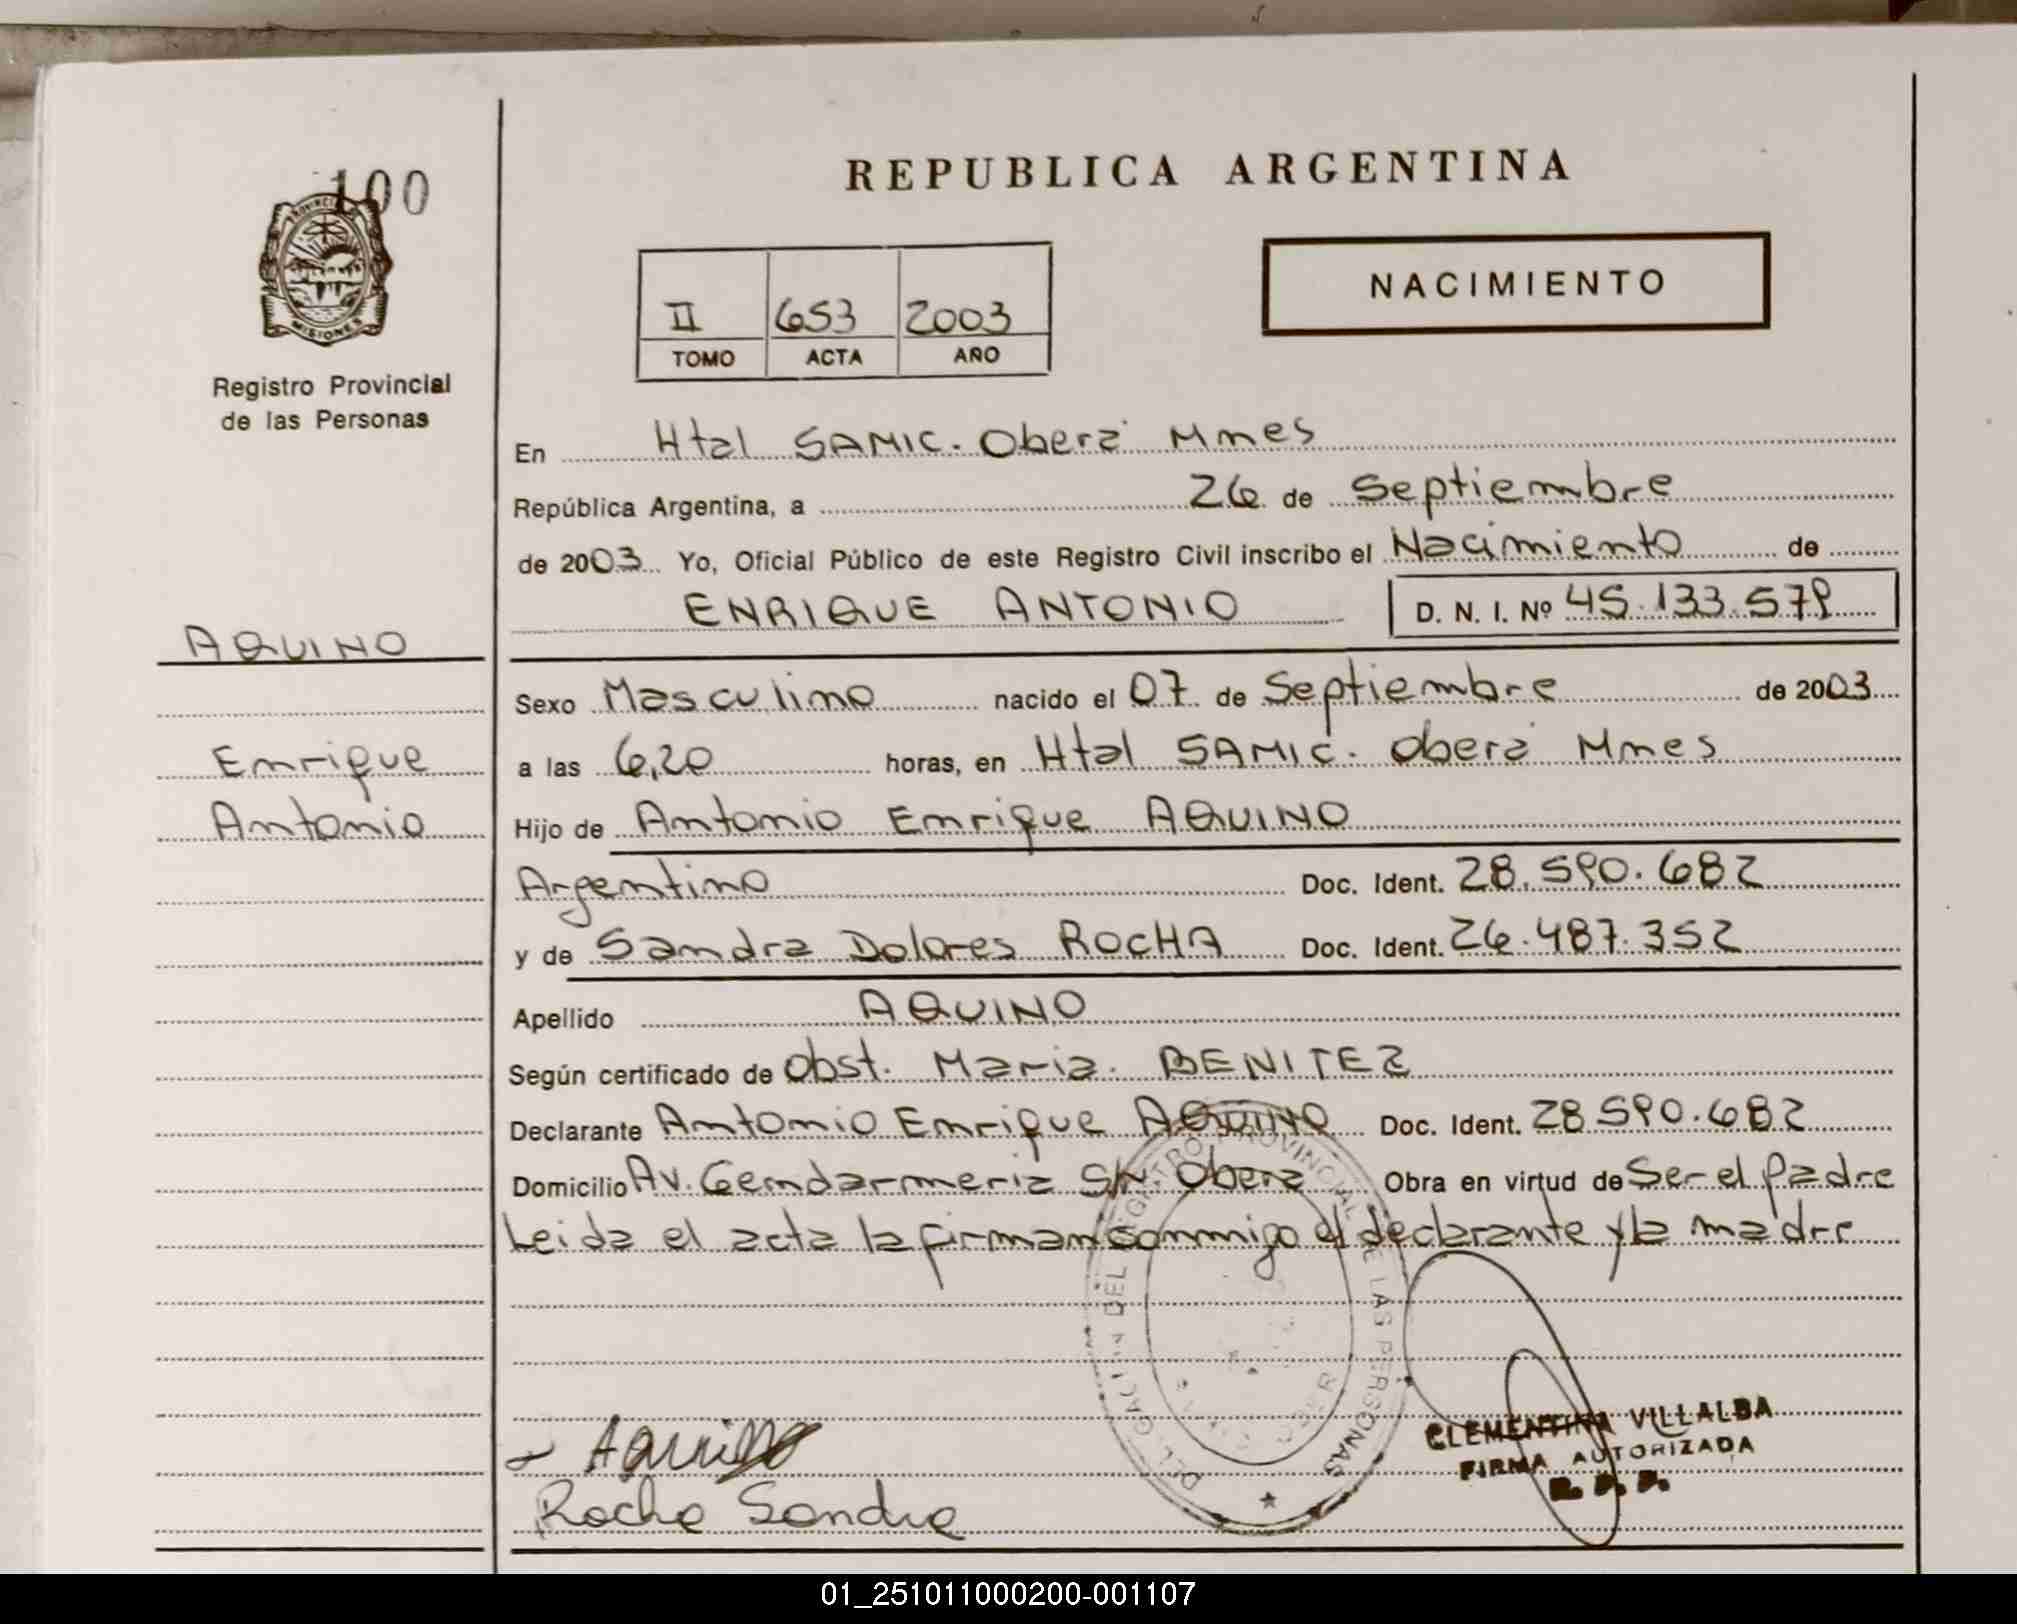 100
PROVINCIA
MISIONES
Registro Provincial
de las Personas
REPUBLICA ARGENTINA
NACIMIENTO
II 653 2003
TOMO ACTA AÑO
En Htal SAMIC. Oberá Mnes
República Argentina, a 26 de Septiembre
de 2003 Yo, Oficial Público de este Registro Civil inscribo el Nacimiento de
ENRIQUE ANTONIO D. N. I. Nº 45.133.579
AQUINO
Enrique
Antonio
Sexo Masculino nacido el 07 de Septiembre de 2003
a las 6,20 horas, en Htal SAMIC. Oberá Mnes
Hijo de Antonio Enrique AQUINO
Argentino Doc. Ident. 28.590.682
y de Sandra Dolores ROCHA Doc. Ident. 26.487.352
Apellido AQUINO
Según certificado de Obst. Maria. BENITEZ
Declarante Antonio Enrique AQUINO Doc. Ident. 28590.682
Domicilio Av. Gendarmeria S/N Obera Obra en virtud de Ser el Padre
Leida el acta la firman conmigo el declarante y la madre
DEL REGISTRO PROVINCIAL DE LAS PERSONAS
Aquino
Rocha Sandra
CLEMENTINA VILLALBA
FIRMA AUTORIZADA
R. P. P.
01_251011000200-001107